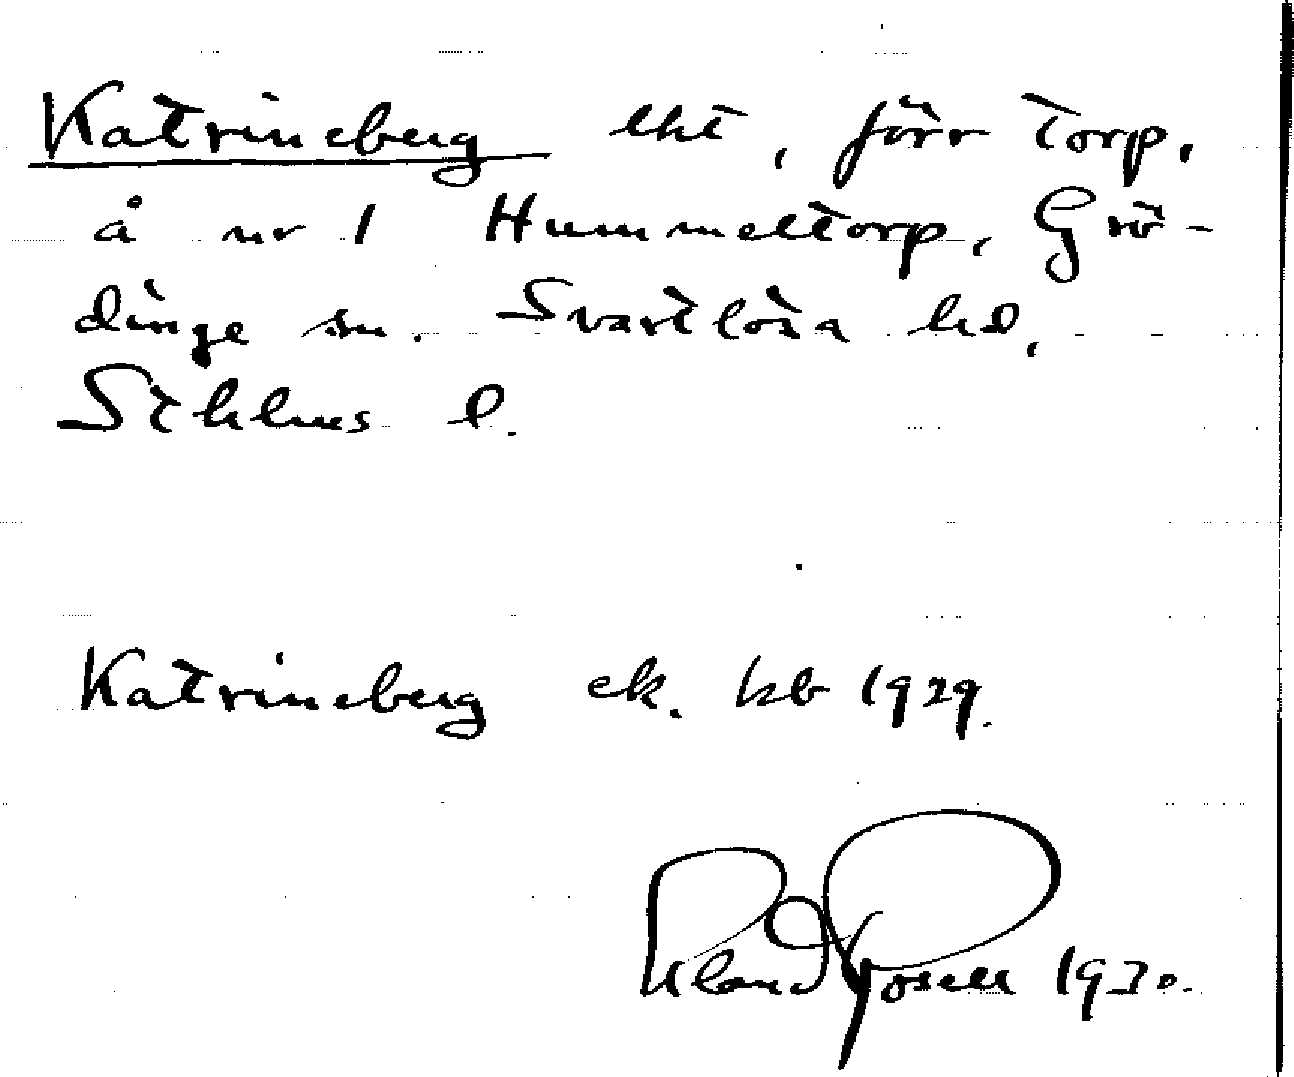 Katrineberg lht, förr torp,
å nr 1 Hummeltorp, Grö-
dinge sn. Svartlösa hd,
Sthlms l.
Katrineberg ek. kb 1929.
Rosell 1930.